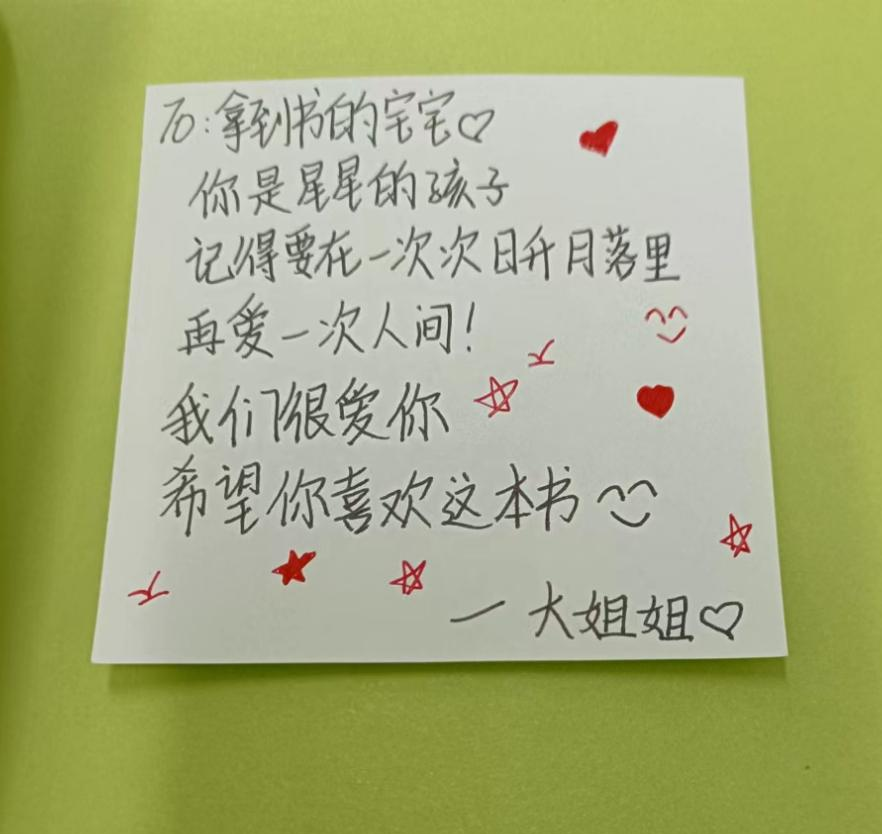 To:拿到书的宝宝♡
你是星星的孩子
记得要在一次次日升月落里
再爱一次人间!
我们很爱你
希望你喜欢这本书
一大姐姐♡